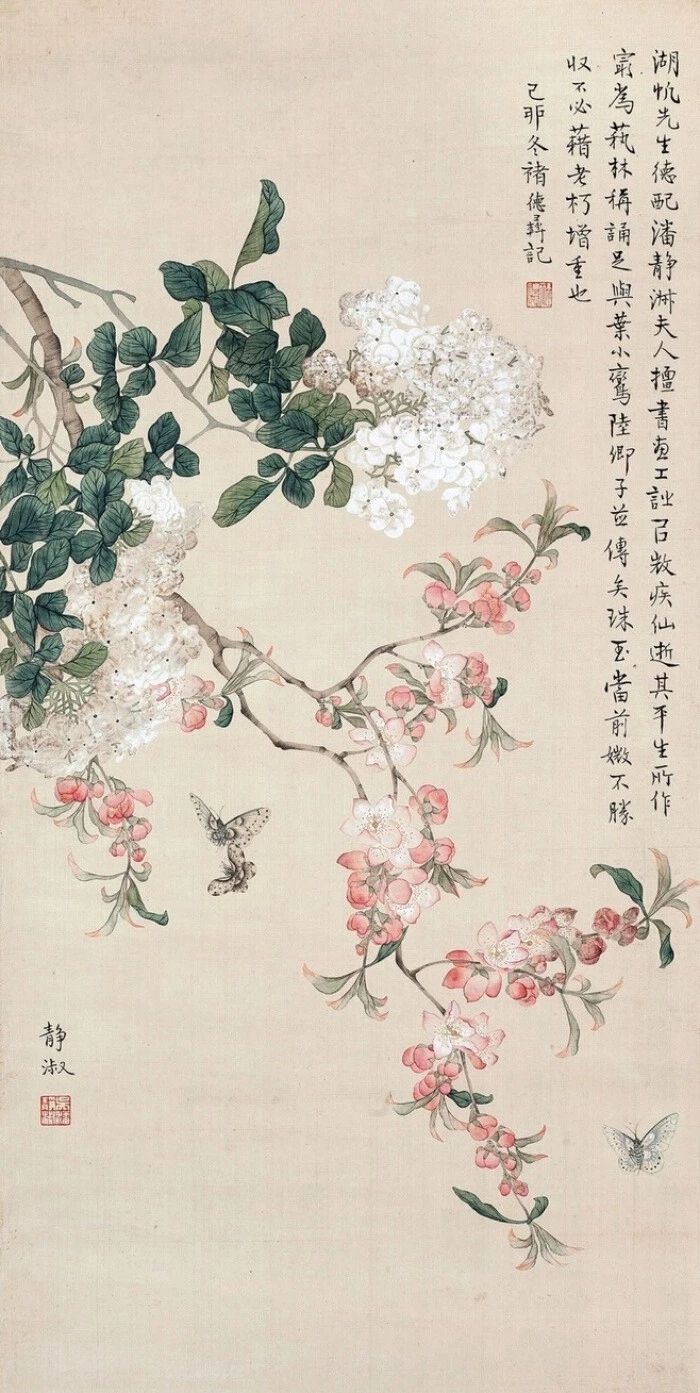 湖帆先生德配潘静淑夫人擅書画工詞召數疾仙逝其平生所作
宷為蓺林稱誦足與葉小鸞陸卿子並傳矣珠玉當前媺不勝
収不必藉老朽增重也
己卯冬褚德彝記
静
淑